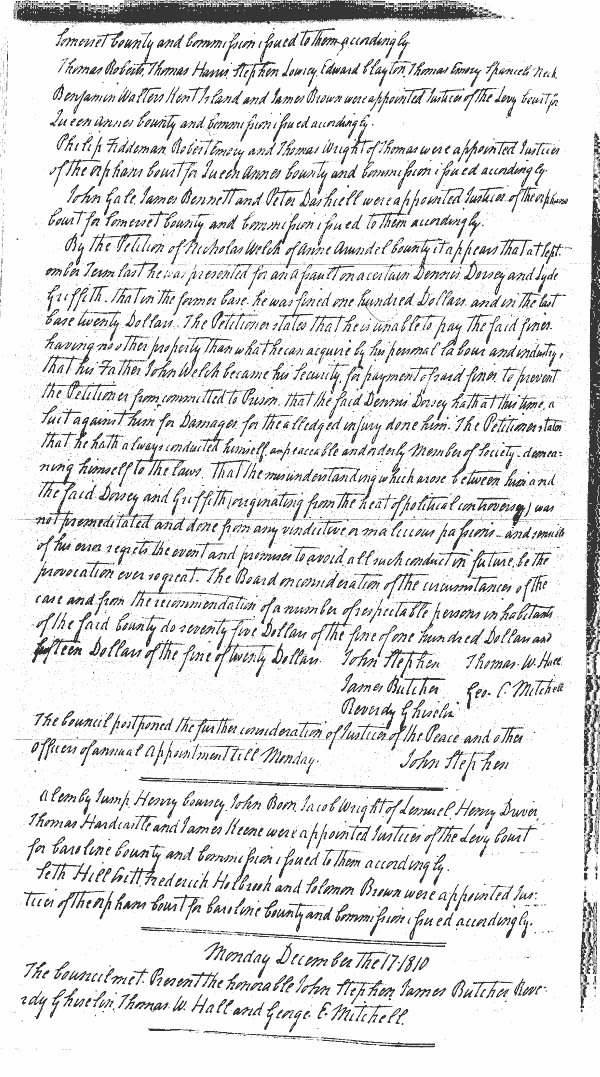 Somerset County and Commission issued to them accordingly
Thomas Roberts, Thomas Harris Stephen Lowrey Edward Clayton, Thomas Emory Spaniard Neck
Benjamin Walters Kent Island and James Brown were appointed Justices of the Levy Court for
Queen Annes County and Commission issued accordingly.
Philip Fiddeman Robert Emory and Thomas Wright of Thomas were appointed Justices
of the orphans Court for Queen Annes County and Commission issued accordingly
John Gale James Bennett and Peter Dashiell were appointed Justices of the orphans
Court for Somerset County and Commission issued to them accordingly.
By the Petition of Nicholas Welch of Anne Arundel County it appears that at Sept
ember Term last he was presented for an assault on a certain Dennis Dorsey and Lyde
Griffith. that in the former Case he was fined one hundred Dollars and in the last
Case twenty Dollars. The Petitioner states that he is unable to pay the said fines
having no other property than what he can acquire by his personal labour and industry,
that his Father John Welch became his Security for payment of said fines to prevent
the Petitioner from committed to Prison. that the said Dennis Dorsey hath at this time, a
Suit against him for Damages for the alledged injury done him. The Petitioner states
that he hath always conducted himself, an peaceable and orderly Member of Society - demea-
ning himself to the laws. That the misunderstanding which arose between him and
the said Dorsey and Griffith (originating from the heat of political controversy) was
not premeditated and done from any vindictive or malicious passions - and sensible
of his error regrets the event and promises to avoid all such conduct in future, be the
provocation ever so great. The Board on consideration of the circumstances of the
case and from the recommendation of a number of respectable persons inhabitants
of the said County do seventy five Dollars of the fine of one hundred Dollars and
fifteen Dollars of the fine of twenty Dollars. John Stephen Thomas W. Hall
James Butcher Geo. E. Mitchell
Reverdy Ghiselin
The Council postponed the further consideration of Justices of the Peace and other
officers of annual appointment till Monday. John Stephen
Alemby Jump Henry Coursey John Boon Jacob Wright of Lemuel Henry Driver
Thomas Hardcastle and James Keene were appointed Justices of the Levy Court
for Caroline County and Commission issued to them accordingly.
Seth Hill Evitt, Frederick Holbrook and Solomon Brown were appointed Jus-
tices of the orphans Court for Caroline County and Commission issued accordingly.
Monday December the 17. 1810
The Council met. Present the honorable John Stephen James Butcher Reve-
rdy Ghiselin, Thomas W. Hall and George E. Mitchell.